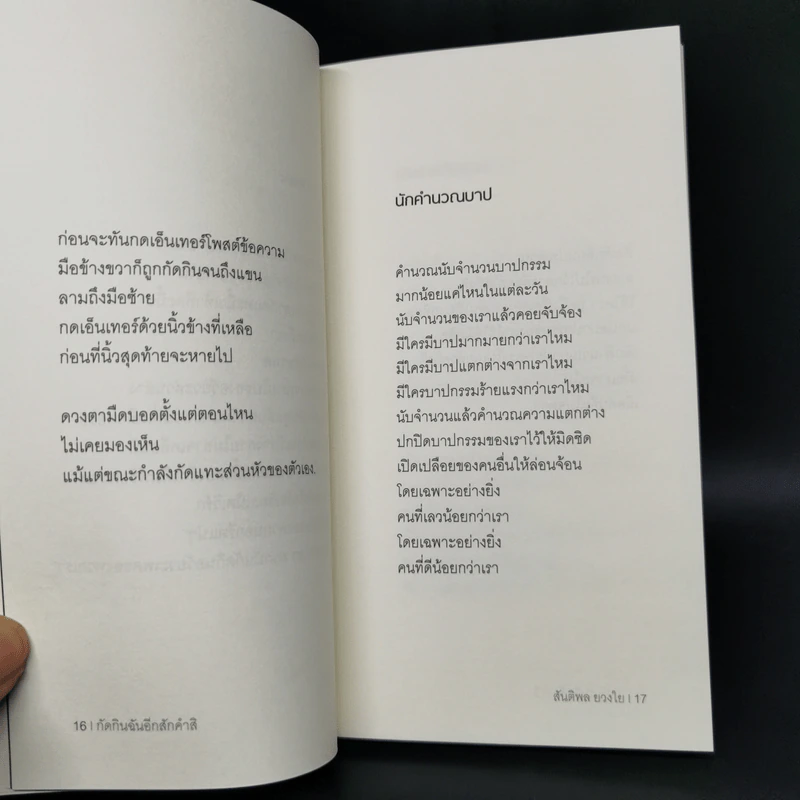 ก่อนจะทันกดเอ็นเทอร์โพสต์ข้อความ
มือข้างขวาก็ถูกกัดกินจนถึงแขน
ลามถึงมือซ้าย
กดเอ็นเทอร์ด้วยนิ้วข้างที่เหลือ
ก่อนที่นิ้วสุดท้ายจะหายไป
ดวงตามืดบอดตั้งแต่ตอนไหน
ไม่เคยมองเห็น
แม้แต่ขณะกำลังกัดแทะส่วนหัวของตัวเอง.
16 | กัดกินฉันอีกสักคำสิ
นักคำนวณบาป
คำนวณนับจำนวนบาปกรรม
มากน้อยแค่ไหนในแต่ละวัน
นับจำนวนของเราแล้วคอยจับจ้อง
มีใครมีบาปมากมายกว่าเราไหม
มีใครมีบาปแตกต่างจากเราไหม
มีใครบาปกรรมร้ายแรงกว่าเราไหม
นับจำนวนแล้วคำนวณความแตกต่าง
ปกปิดบาปกรรมของเราไว้ให้มิดชิด
เปิดเปลือยของคนอื่นให้ล่อนจ้อน
โดยเฉพาะอย่างยิ่ง
คนที่เลวน้อยกว่าเรา
โดยเฉพาะอย่างยิ่ง
คนที่ดีน้อยกว่าเรา
สันติพล ยวงใย | 17